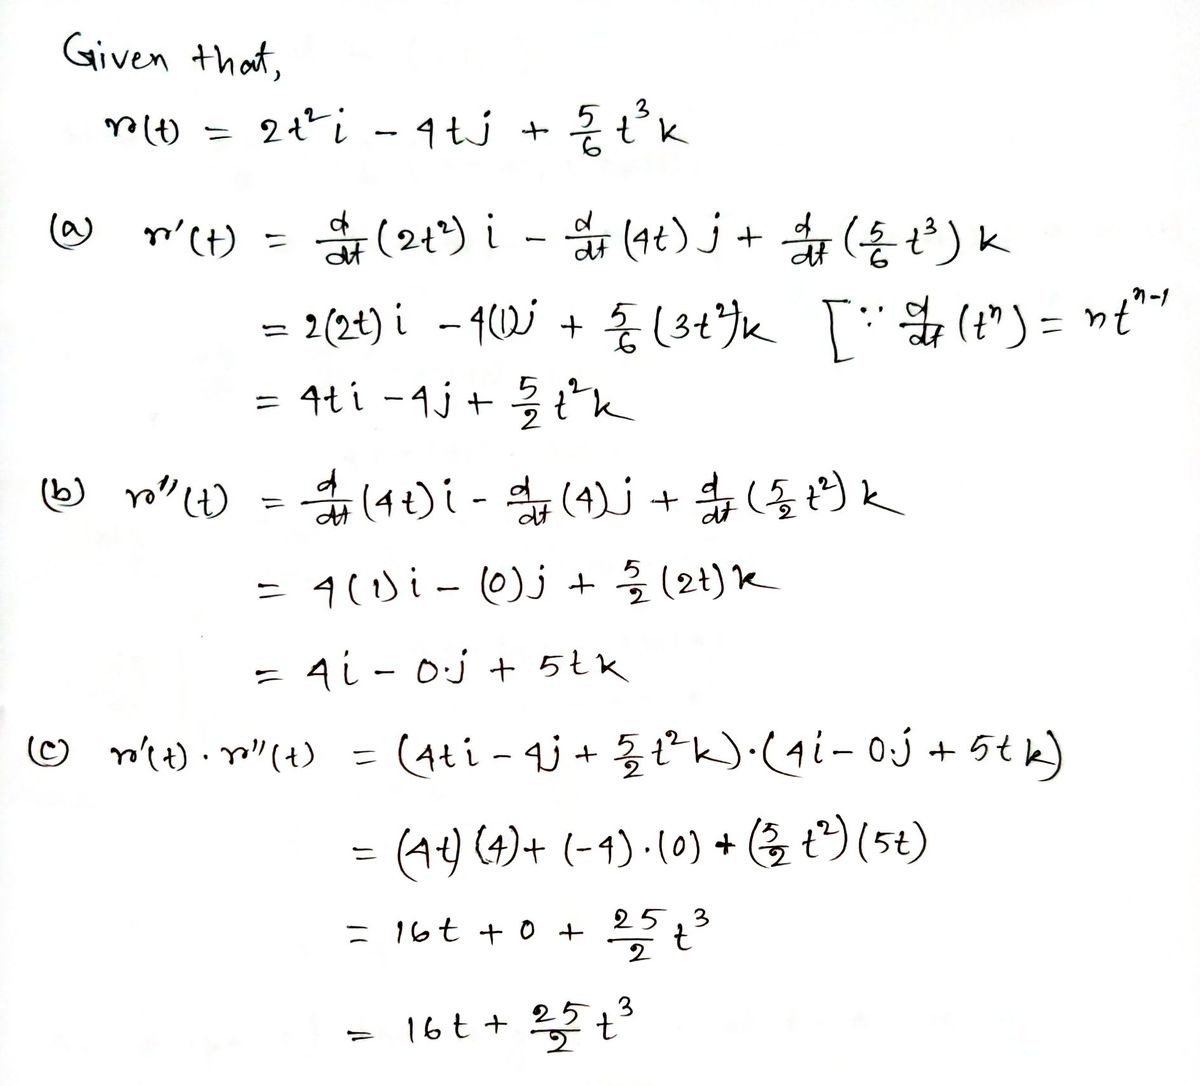 Given that,
r(t) = 2t²i - 4tj + 5/6 t³k
(a) r'(t) = d/dt (2t²) i - d/dt (4t) j + d/dt (5/6 t³) k
= 2(2t) i - 4(1)j + 5/6 (3t²)k [∵ d/dt (tⁿ) = ntⁿ⁻¹
= 4ti - 4j + 5/2 t²k
(b) r''(t) = d/dt (4t) i - d/dt (4)j + d/dt (5/2 t²) k
= 4(1)i - (0)j + 5/2 (2t)k
= 4i - 0·j + 5tk
(c) r'(t) · r''(t) = (4ti - 4j + 5/2 t²k)·(4i - 0·j + 5tk)
= (4t)(4) + (-4)·(0) + (5/2 t²)(5t)
= 16t + 0 + 25/2 t³
= 16t + 25/2 t³